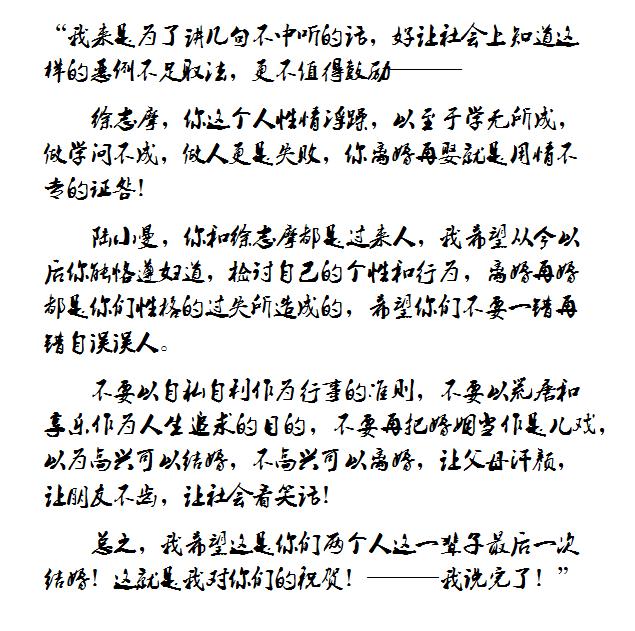 “我来是为了讲几句不中听的话，好让社会上知道这
样的恶例不足取法，更不值得鼓励————
徐志摩，你这个人性情浮躁，以至于学无所成，
做学问不成，做人更是失败，你离婚再娶就是用情不
专的证明！
陆小曼，你和徐志摩都是过来人，我希望从今以
后你能恪遵妇道，检讨自己的个性和行为，离婚再婚
都是你们性格的过失所造成的，希望你们不要一错再
错自误误人。
不要以自私自利作为行事的准则，不要以荒唐和
享乐作为人生追求的目的，不要再把婚姻当作是儿戏，
以为高兴可以结婚，不高兴可以离婚，让父母汗颜，
让朋友不齿，让社会看笑话！
总之，我希望这是你们两个人这一辈子最后一次
结婚！这就是我对你们的祝贺！————我说完了！”